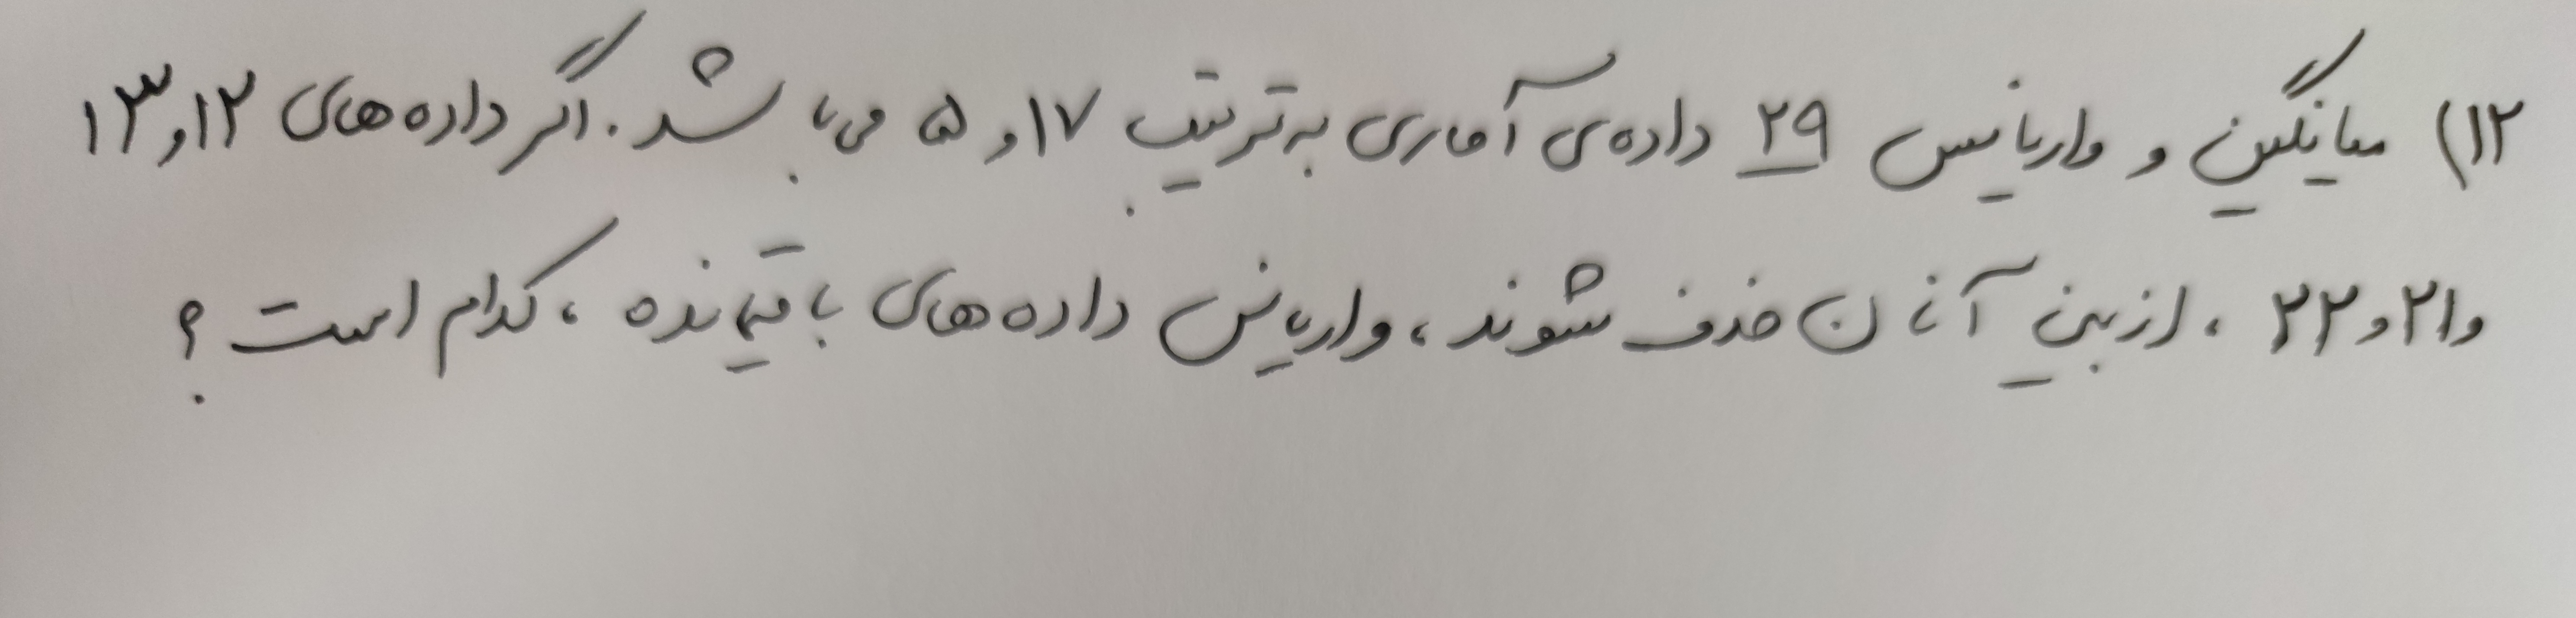 ۱۲) میانگین و واریانس ۲۹ داده‌ی آماری به ترتیب ۱۷ و ۵ می باشد. اگر داده های ۱۲ و ۱۳
و ۲۱ و ۲۲ ، از بین آنان حذف شوند، واریانس داده های باقیمانده ، کدام است؟